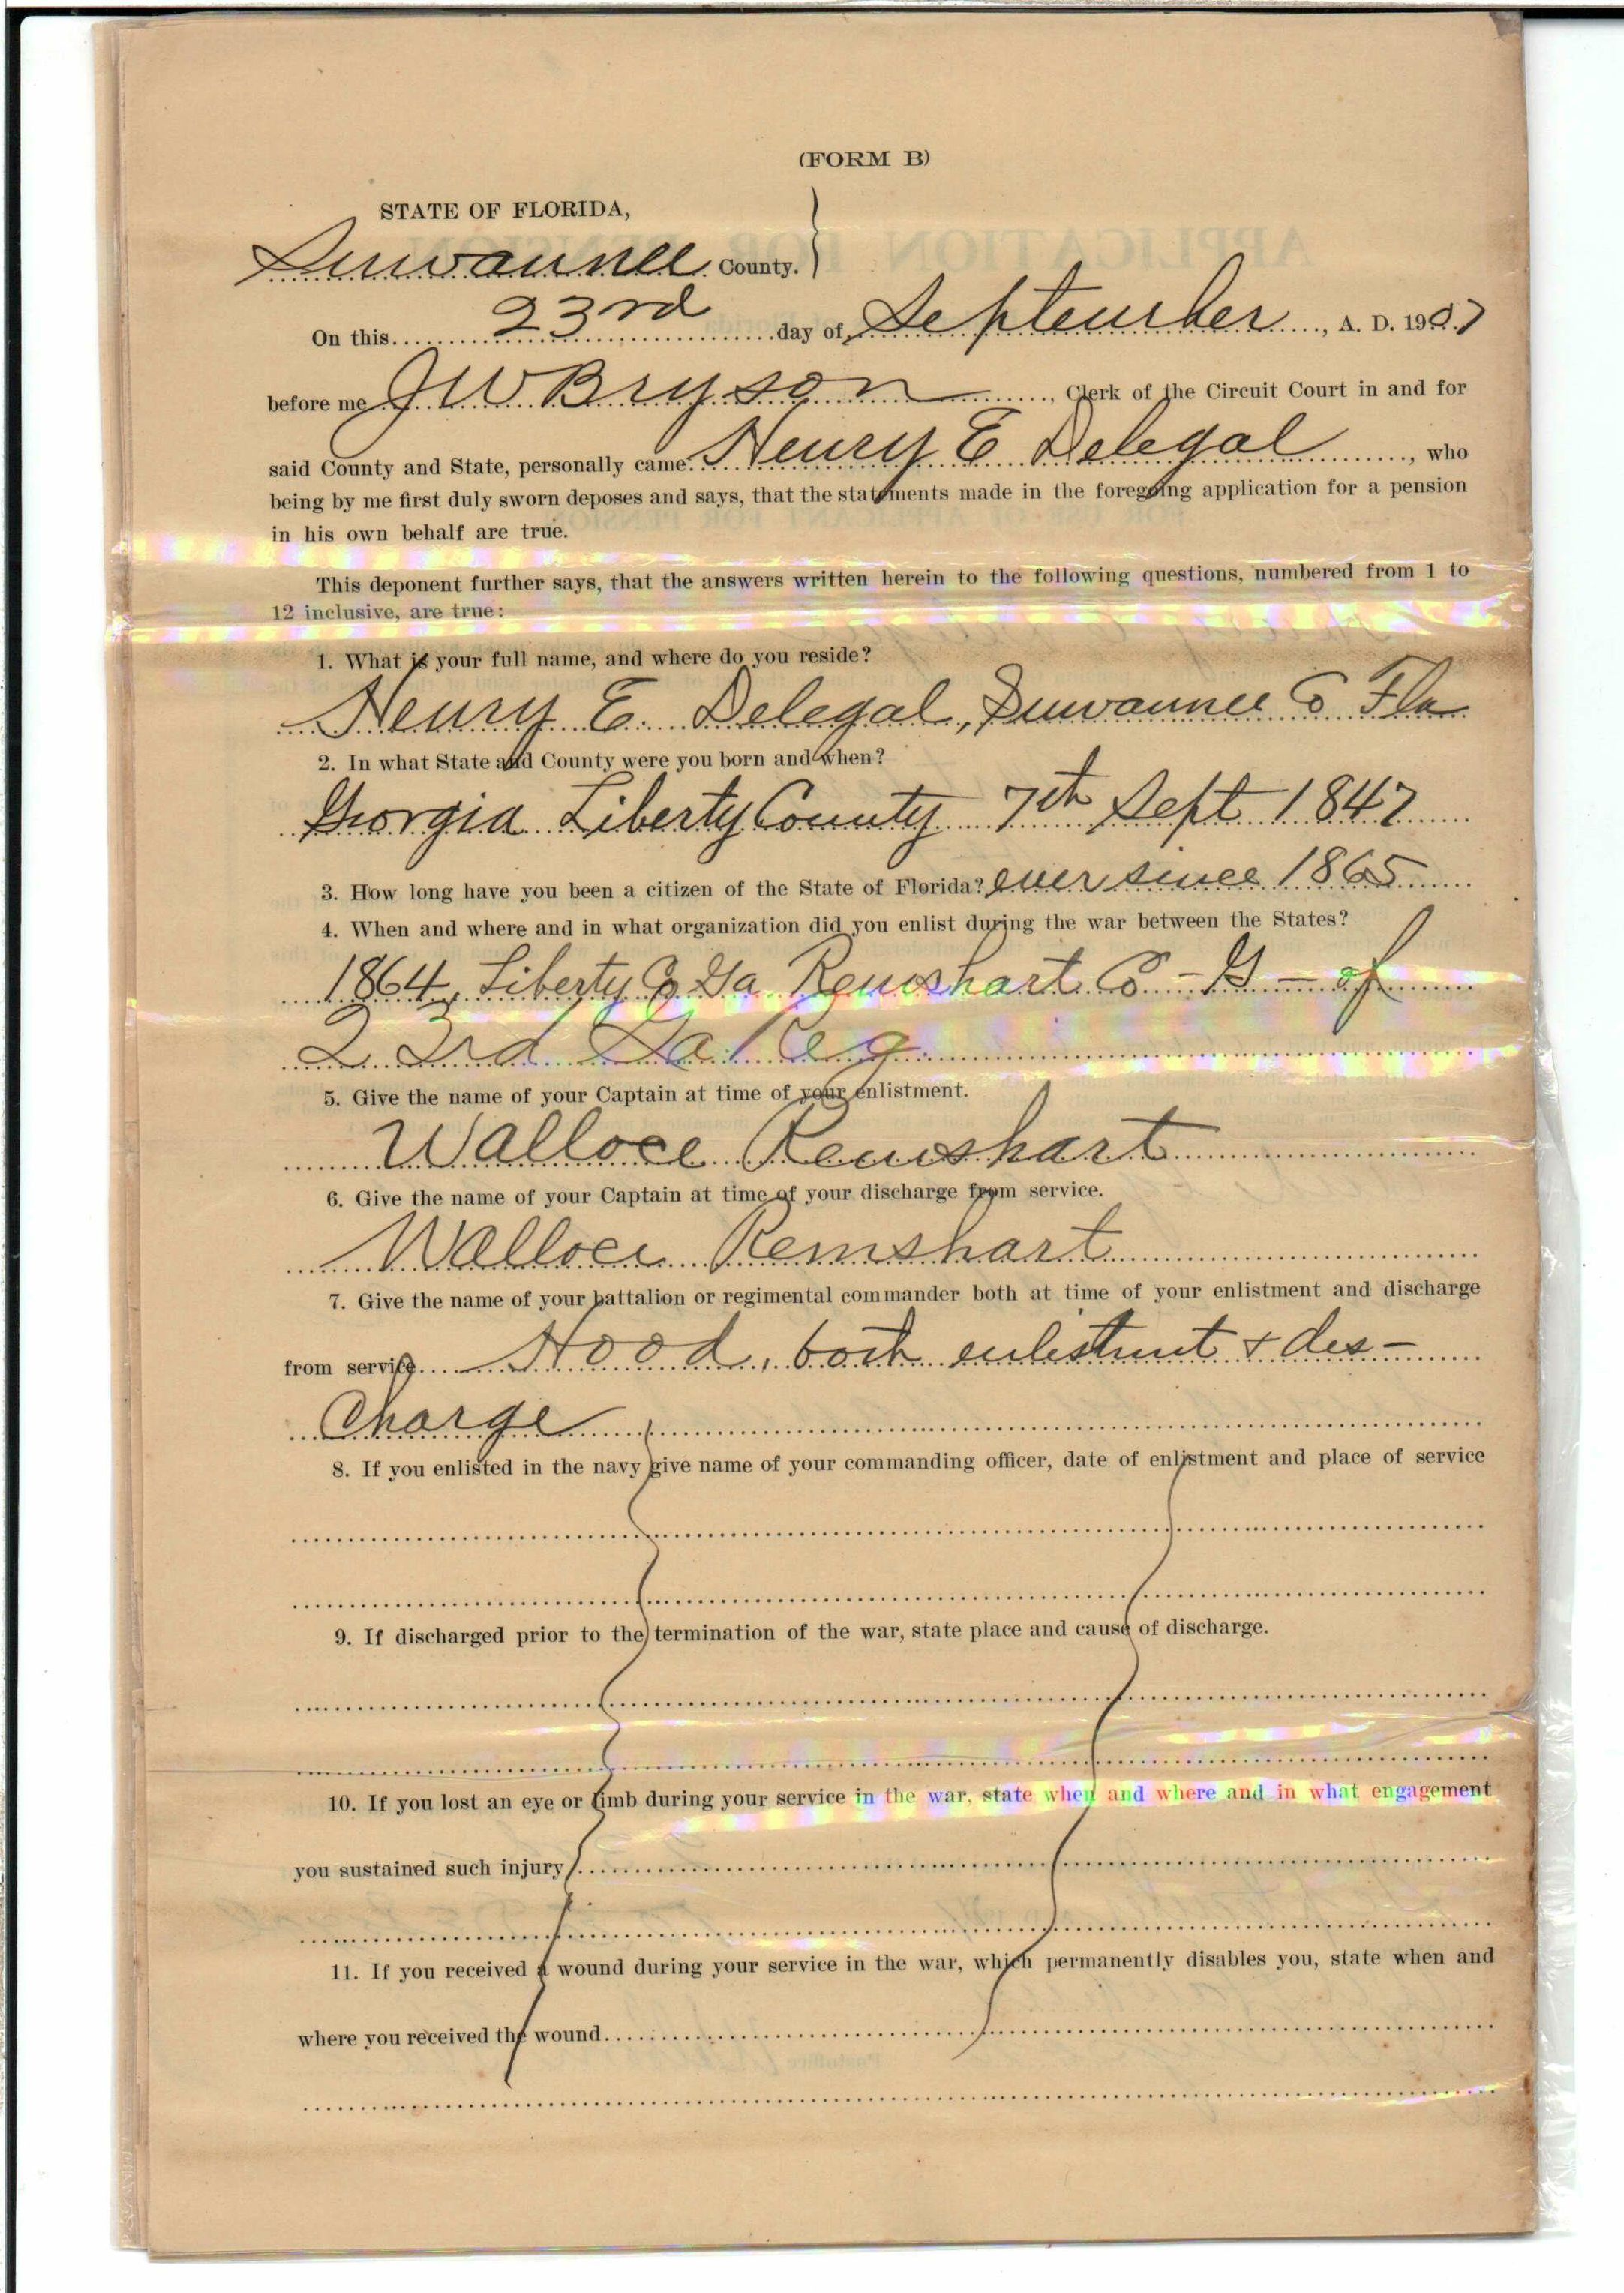 (FORM B)
STATE OF FLORIDA,
Suwannee County.
On this 23rd day of September, A. D. 1907
before me J W Bryson, Clerk of the Circuit Court in and for
said County and State, personally came Henry E Delegal, who
being by me first duly sworn deposes and says, that the statements made in the foregoing application for a pension
in his own behalf are true.
This deponent further says, that the answers written herein to the following questions, numbered from 1 to
12 inclusive, are true:
1. What is your full name, and where do you reside?
Henry E. Delegal, Suwannee Co Fla
2. In what State and County were you born and when?
Georgia Liberty County 7th Sept 1847
3. How long have you been a citizen of the State of Florida? ever since 1865
4. When and where and in what organization did you enlist during the war between the States?
1864, Liberty Co Ga Remshart Co - G - of
23rd Ga Reg
5. Give the name of your Captain at time of your enlistment.
Wallace Remshart
6. Give the name of your Captain at time of your discharge from service.
Wallace Remshart
7. Give the name of your battalion or regimental commander both at time of your enlistment and discharge
from service Hood, both enlistment & des-
charge
8. If you enlisted in the navy give name of your commanding officer, date of enlistment and place of service
9. If discharged prior to the termination of the war, state place and cause of discharge.
10. If you lost an eye or limb during your service in the war, state when and where and in what engagement
you sustained such injury
11. If you received a wound during your service in the war, which permanently disables you, state when and
where you received the wound